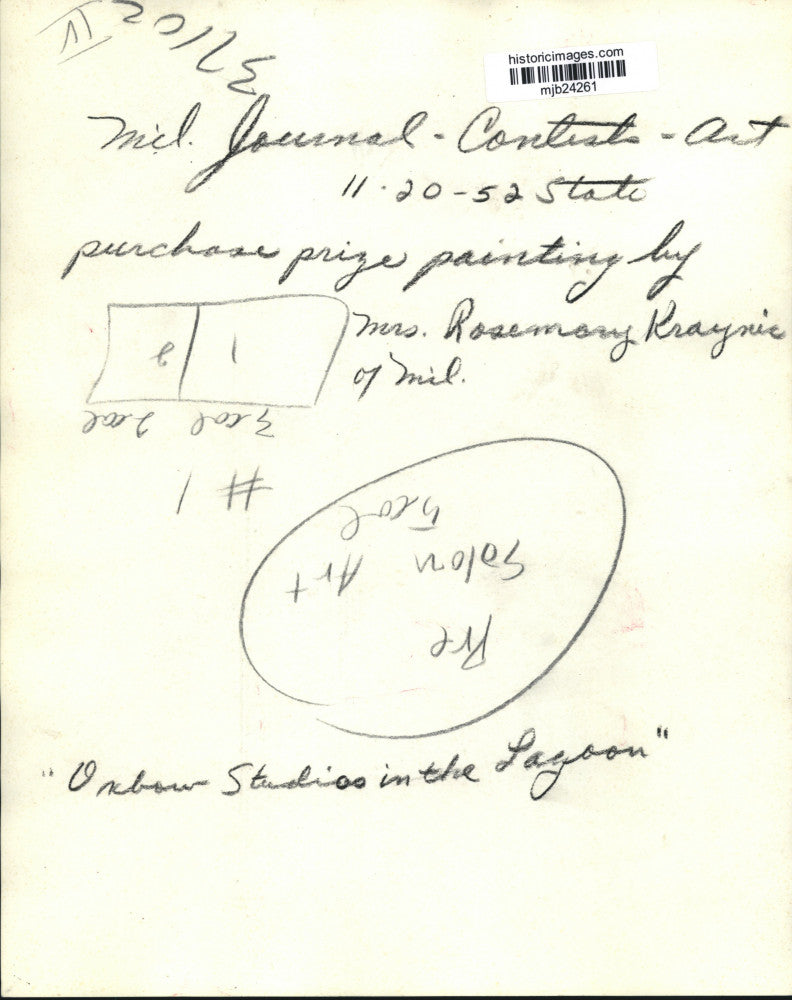 historicimages.com
mjb24261
Mil. Journal - Contests - Art
11-20-52 State
purchase prize painting by
Mrs. Rosemary Kraynic
of Mil.
2 1
2 col 3 col
# 1
5 col
Salon Art
Pre
"Oxbow Studios in the Lagoon"